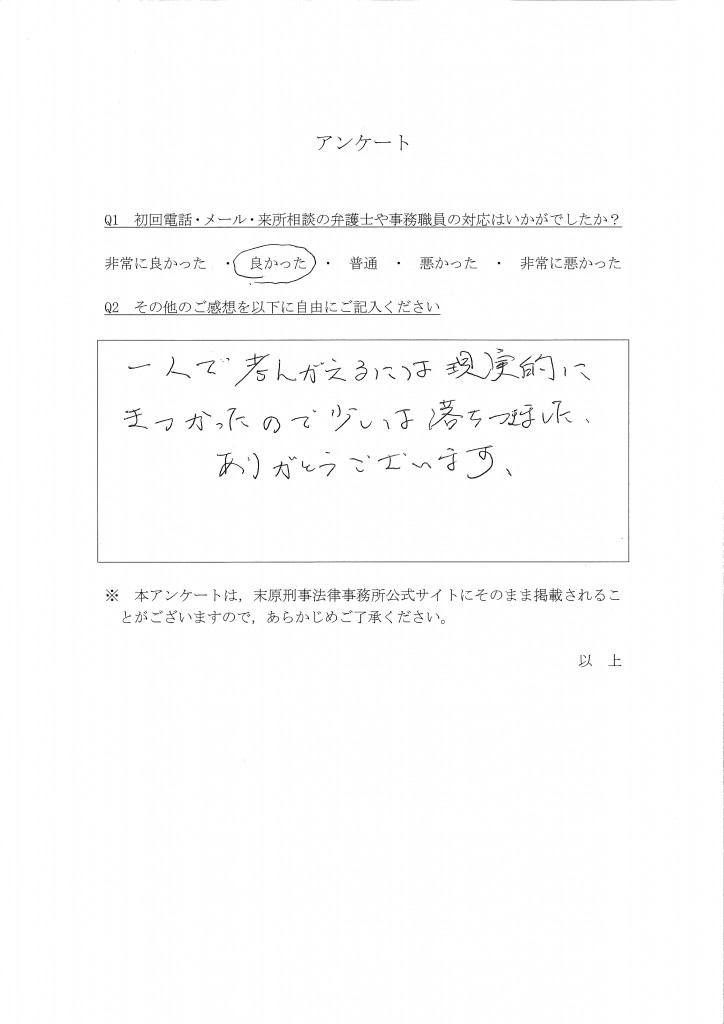 アンケート
Q1 初回電話・メール・来所相談の弁護士や事務職員の対応はいかがでしたか？
非常に良かった ・ 良かった ・ 普通 ・ 悪かった ・ 非常に悪かった
Q2 その他のご感想を以下に自由にご記入ください
一人で考んがえるには現実的に
きつかったので少しは落ちつきました、
ありがとうございます、
※ 本アンケートは，末原刑事法律事務所公式サイトにそのまま掲載されるこ
とがございますので，あらかじめご了承ください。
以 上